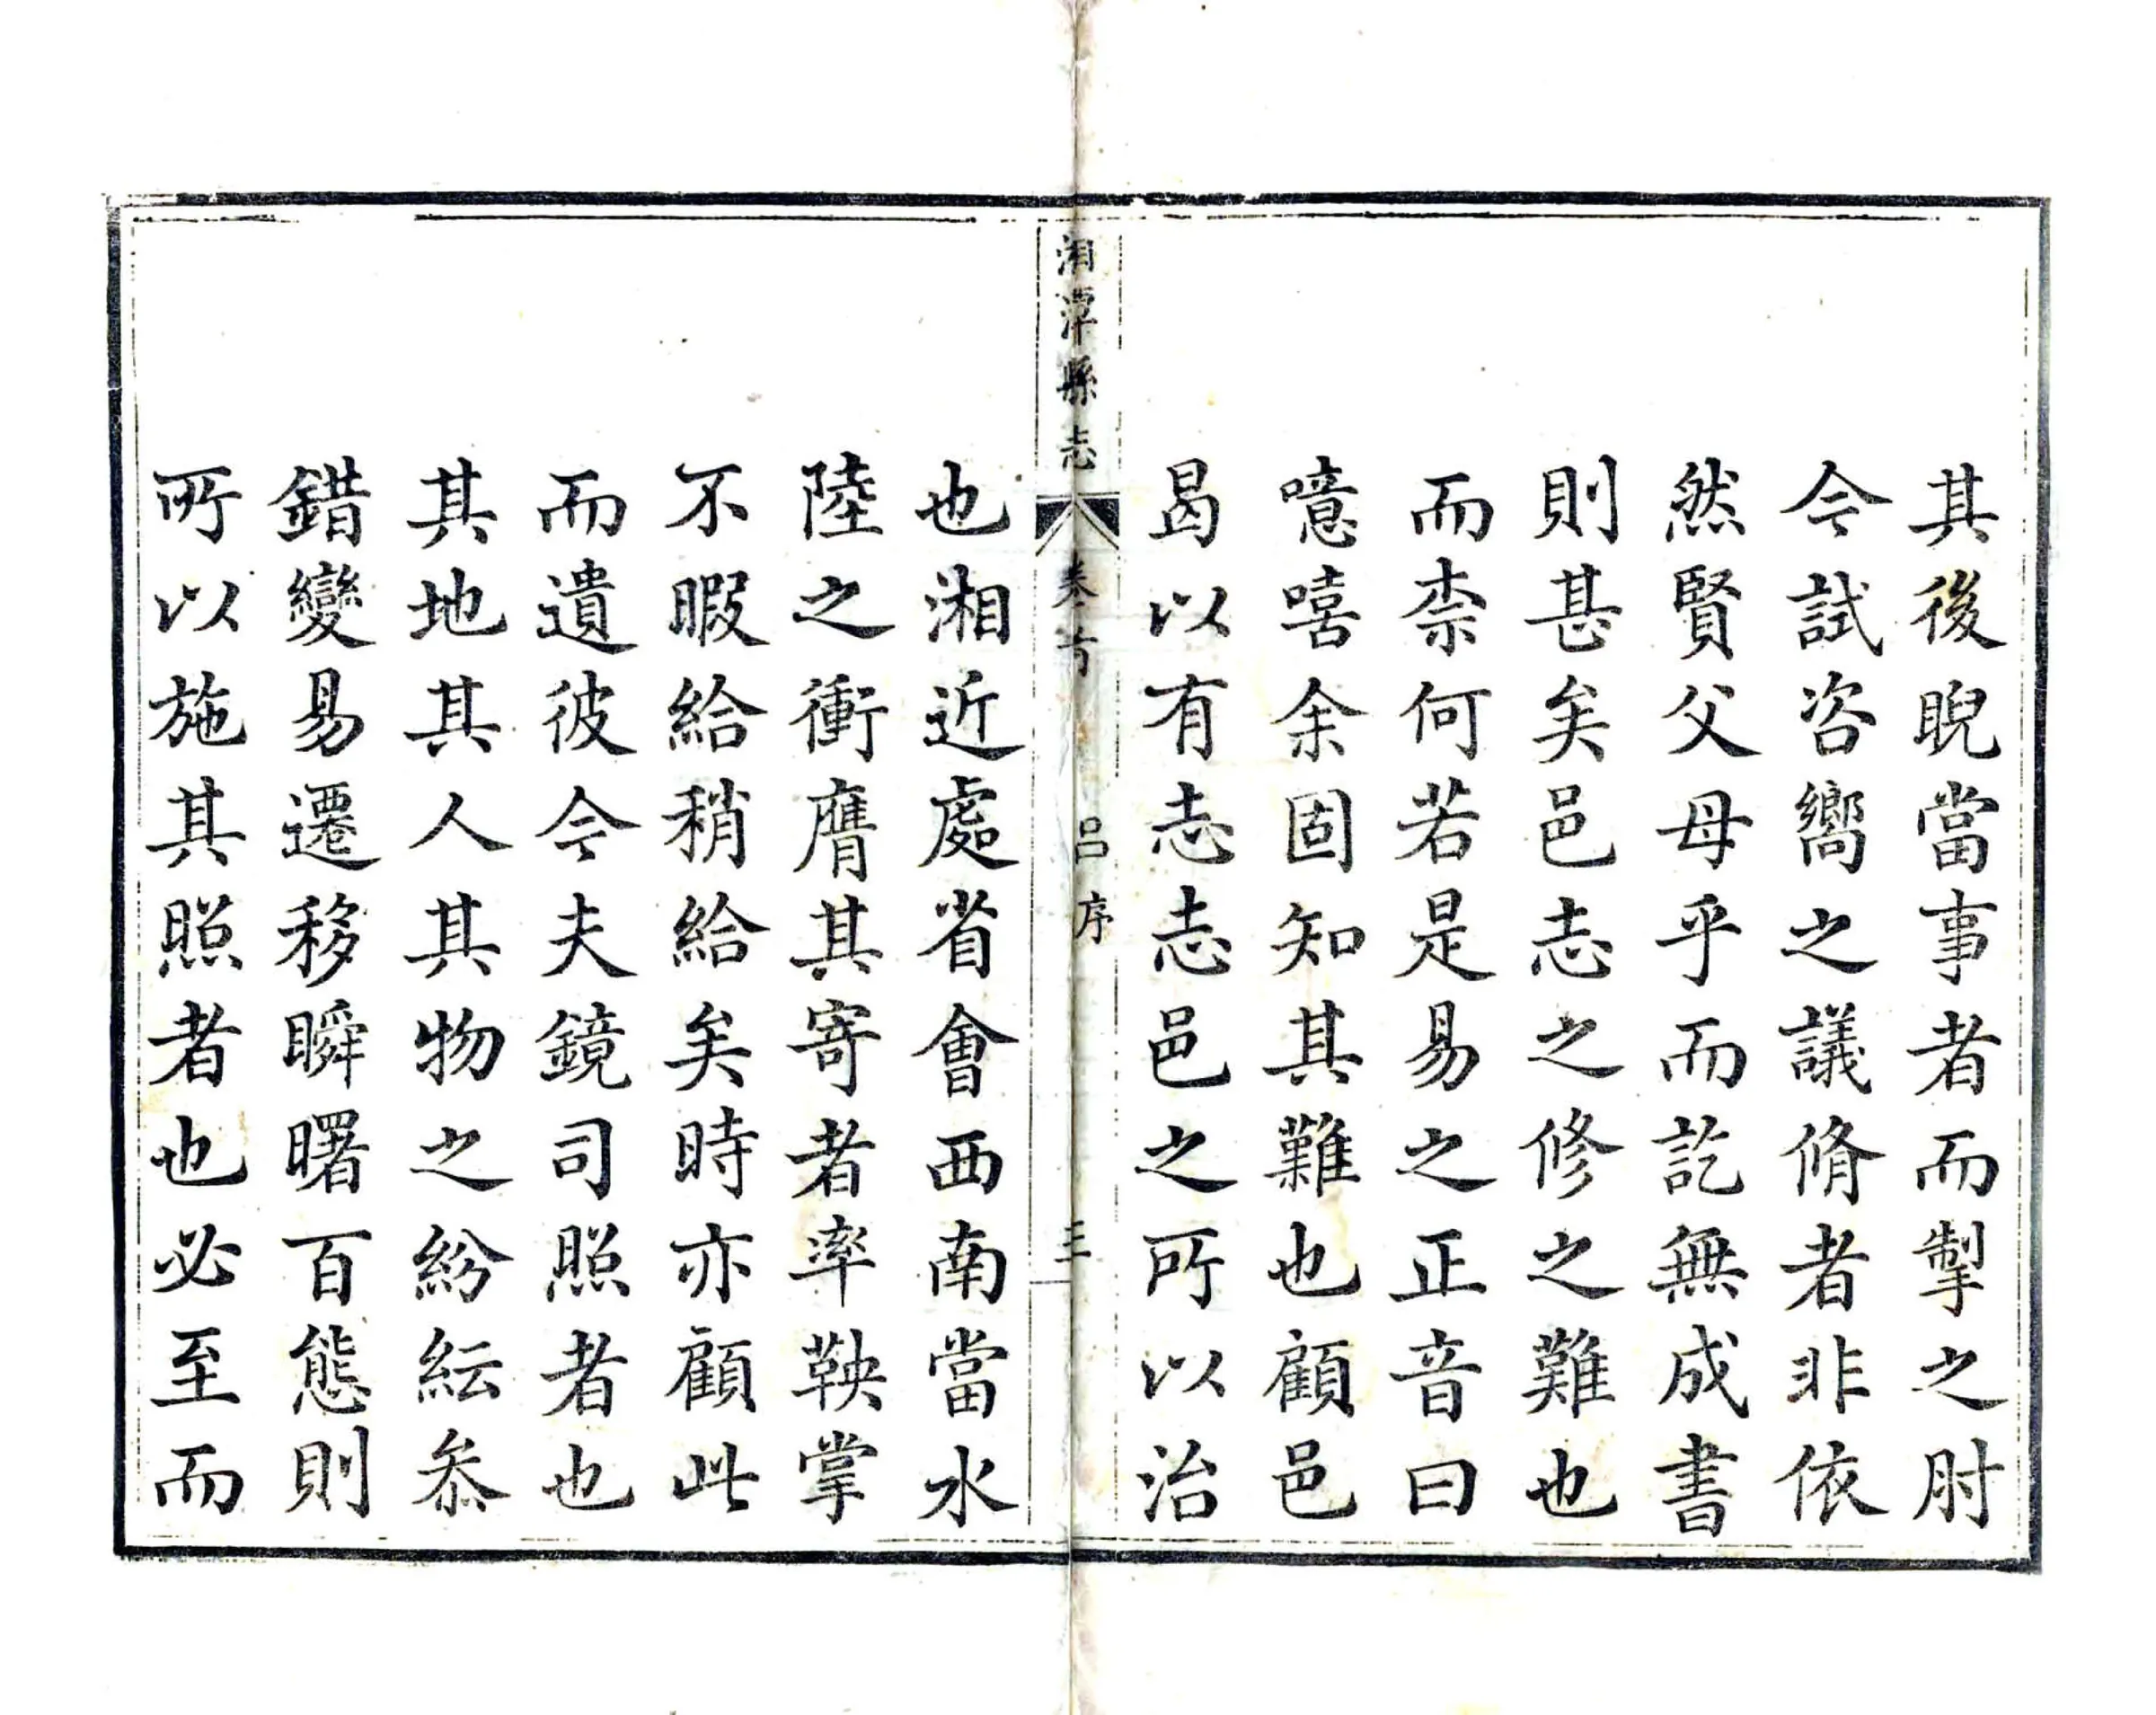 其後睨當事者而掣之肘
今試咨嚮之議脩者非依
然賢父母乎而訖無成書
則甚矣邑志之修之難也
而柰何若是易之正音曰
噫嘻余固知其難也顧邑
曷以有志志邑之所以治
湘潭縣志
卷首
呂序
三
也湘近處省會西南當水
陸之衝膺其寄者率鞅掌
不暇給稍給矣時亦顧此
而遺彼今夫鏡司照者也
其地其人其物之紛紜叅
錯變易遷移瞬曙百態則
所以施其照者也必至而